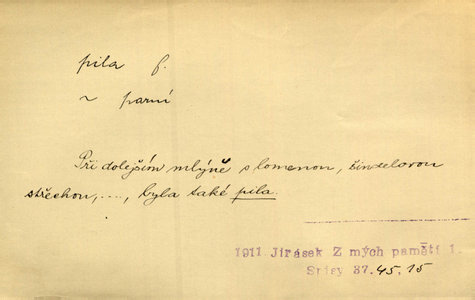 pila f.
~ parní
Při dolejším mlýně s lomenou, šindelovou
střechou, ..., byla také pila.
1911 Jirásek Z mých pamětí 1.
Spisy 37. 45, 15